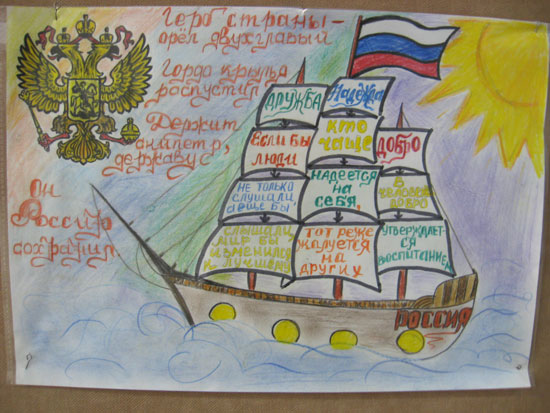 Герб страны -
орёл двухглавый
Гордо крылья
распустил
Держит
скипетр,
державу
Он
Россию
сохранил
Дружба
Если бы
люди
не только
слушали
а еще бы
слышали
мир бы
изменился
к лучшему
Надежда
Кто
чаще
надеется
на
себя,
тот реже
жалуется
на
других
Добро
в
человеке
добро
утверждает-
ся
воспитанием
Россия